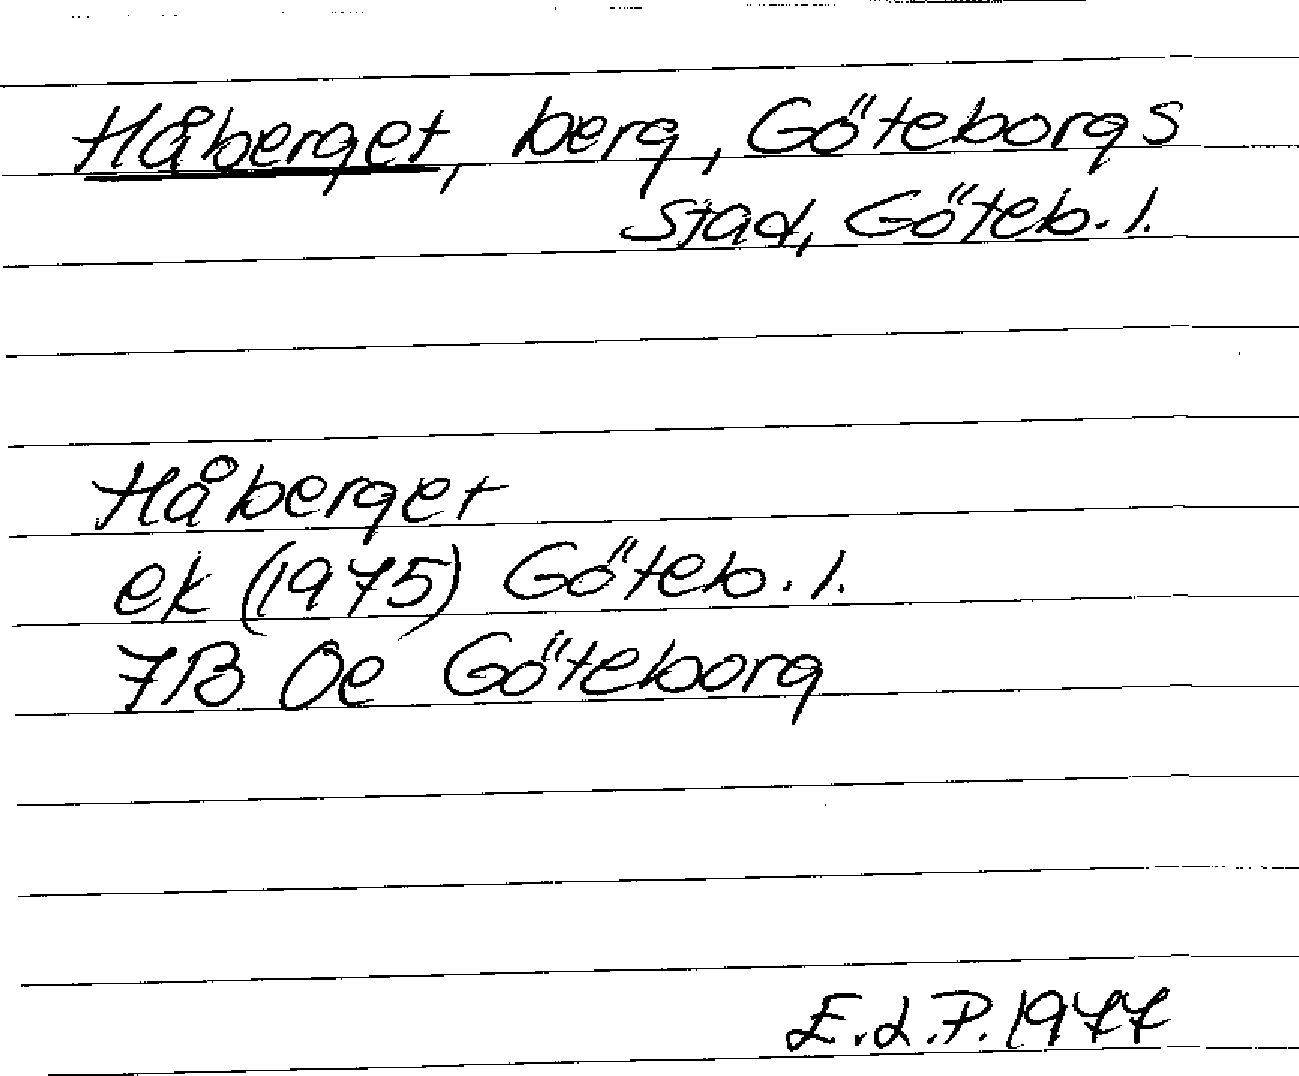 Håberget, berg, Göteborgs
stad, Göteb. l.
Håberget
ek (1975) Göteb. l.
7B Oe Göteborg
E.L.P. 1977